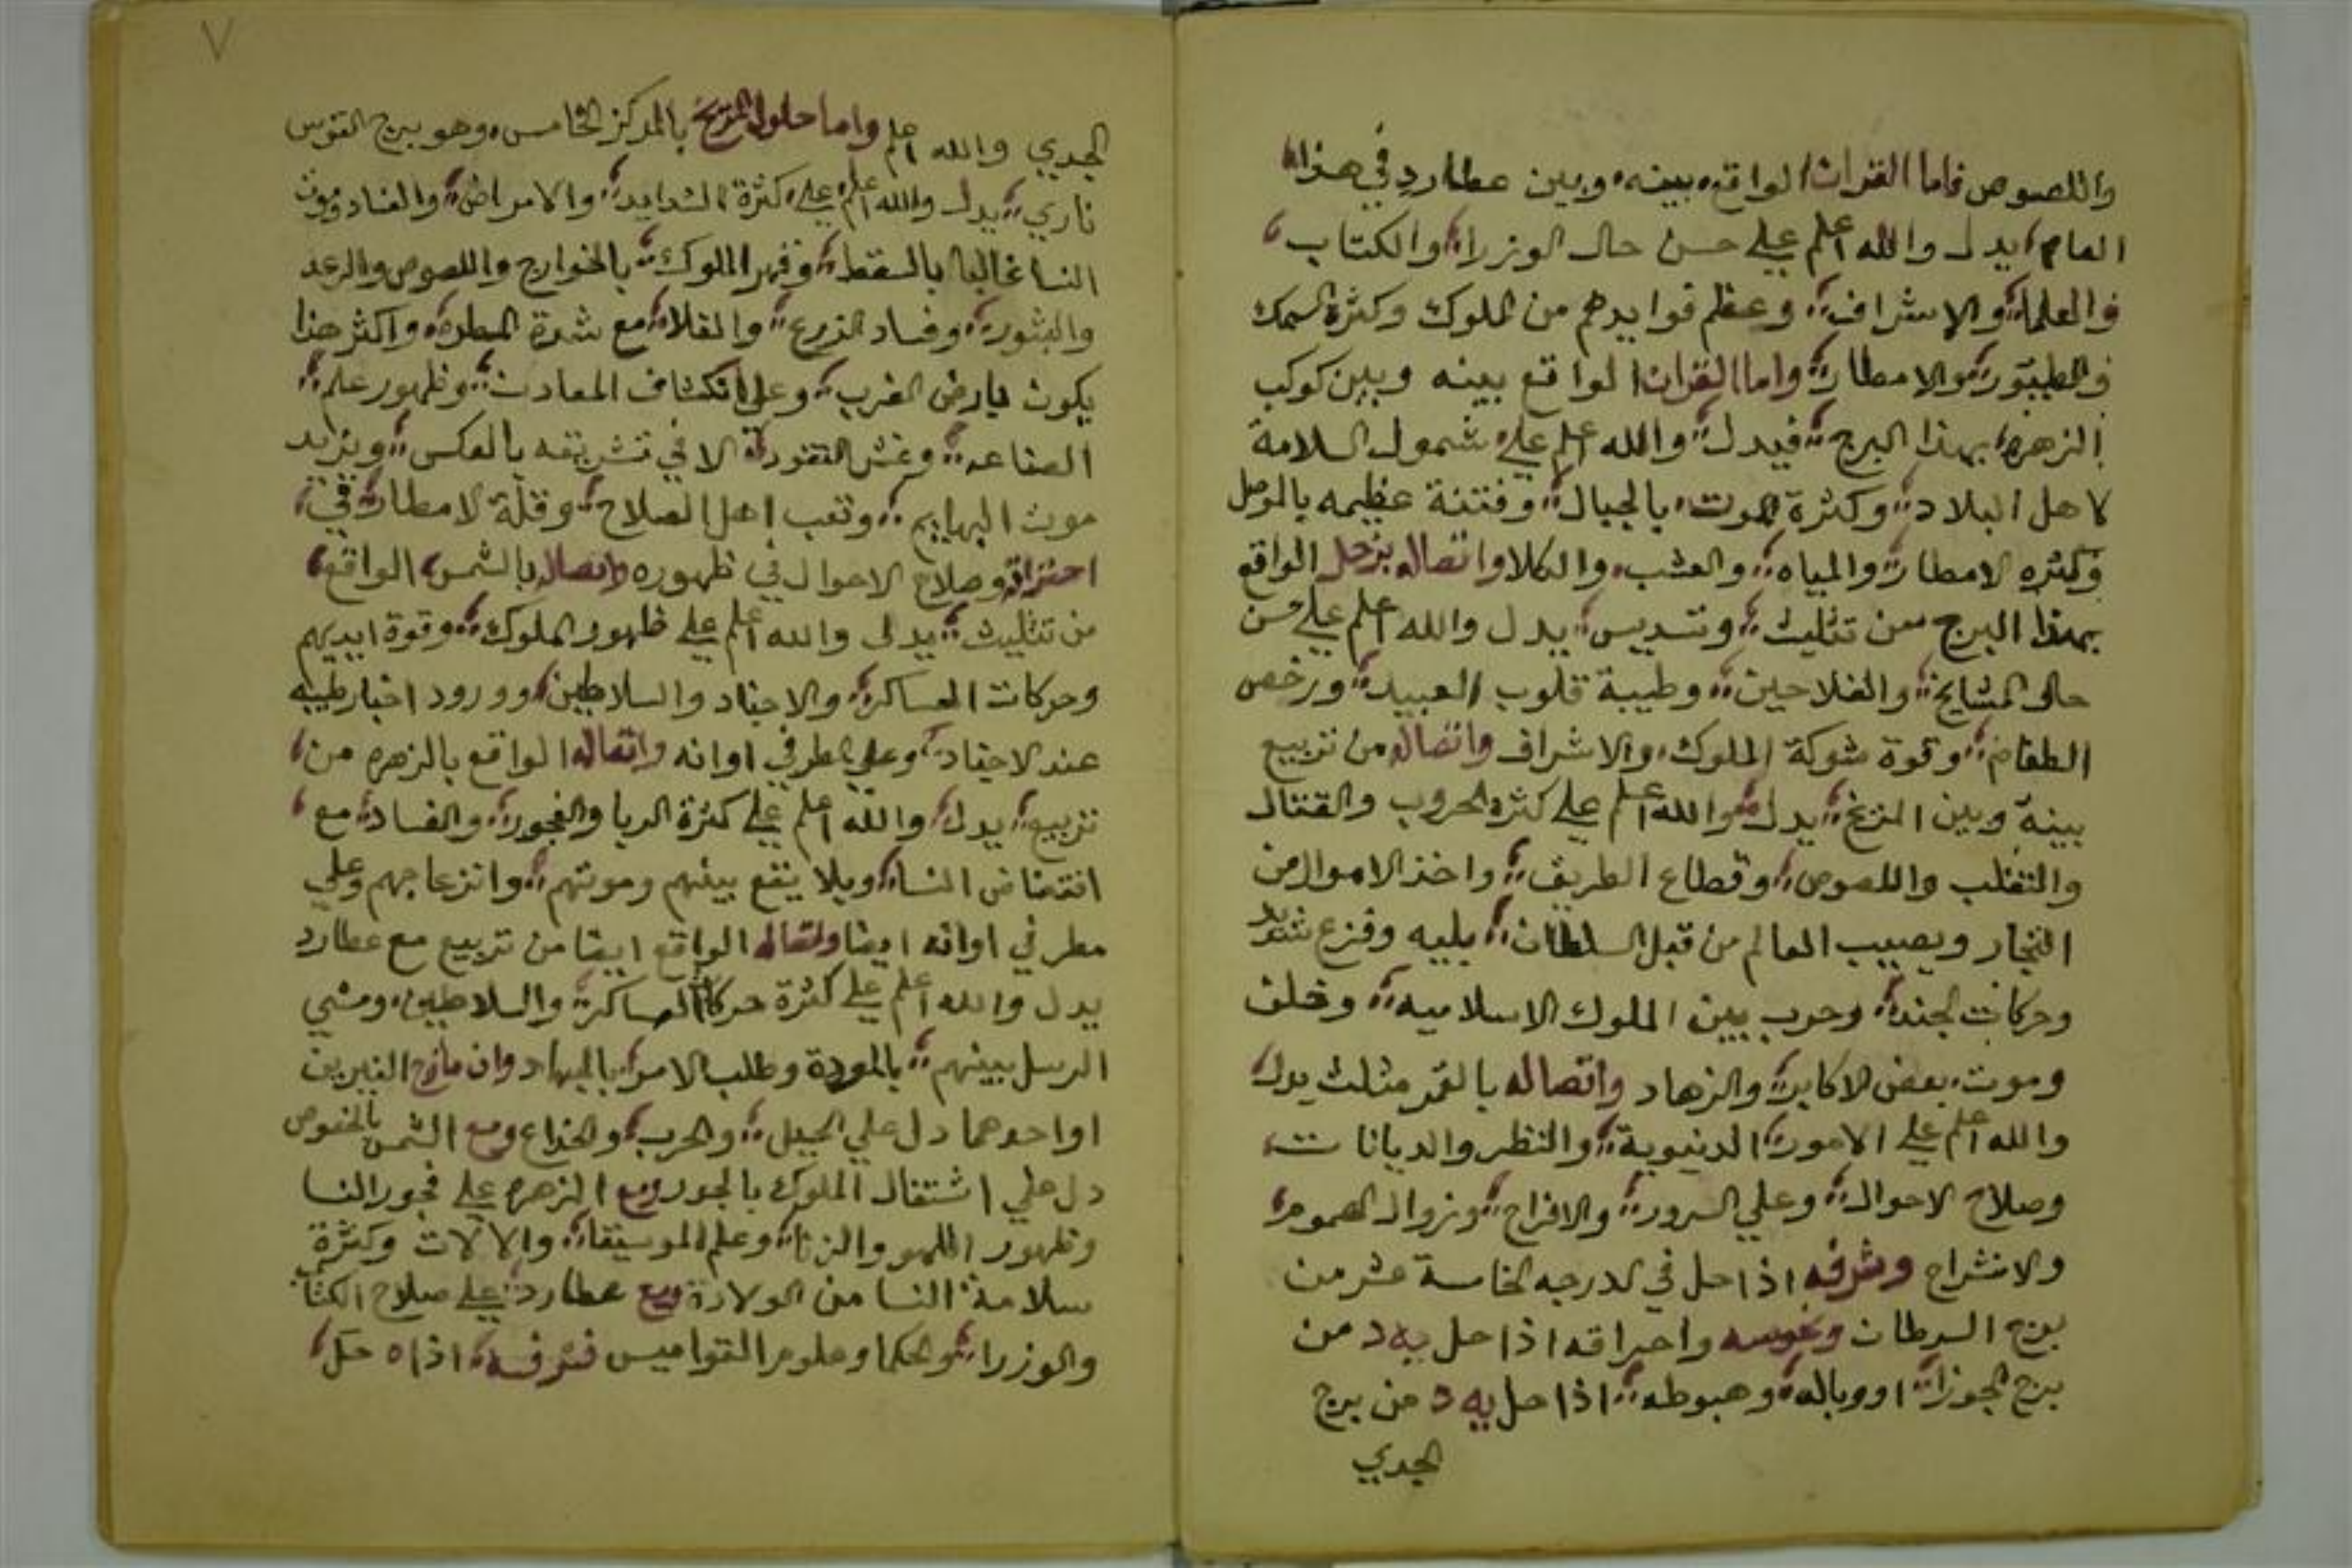 واللصوص فاما القران الواقع بينه وبين عطارد في هذا
العام يدل والله اعلم علي حسن حال الوزرا والكتاب
والعلما والاشراف وعظم فوايدهم من الملوك وكثرة السمك
والطيور والامطار واما القران الواقع بينه وبين كوكب
الزهره بهذا البرج فيدل والله اعلم علي شمول السلامة
لاهل البلاد وكثرة الموت بالجبال وفتنة عظيمه بالموصل
وكثره الامطار والمياه والعشب والكلا واتصاله بزحل الواقع
بهذا البرج من تثليث وتسديس يدل والله اعلم علي حسن
حال المشايخ والفلاحين وطيبة قلوب العبيد ورخص
الطعام وقوة شوكة الملوك والاشراف واتصاله من تربيع
بينه وبين المريخ يدل والله اعلم علي كثرة الحروب والقتال
والتغلب واللصوص وقطاع الطريق واخذ الاموال من
التجار ويصيب العالم من قبل السلطان بليه وفزع شديد
وحركات الجند وحرب بين الملوك الاسلاميه وخلف
وموت بعض الاكابر والزهاد واتصاله بالقمر مثلث يدل
والله اعلم علي الامور الدنيوية والنظر والديانات
وصلاح الاحوال وعلي السرور والافراح وزوال الهموم
والانشراح وشرفه اذا حل في الدرجه الخامسة عشر من
برج السرطان ونحوسه واحراقه اذا حل يه د من
برج الجوزا او وباله وهبوطه اذا حل يه د من برج
الجدي
٧
الجدي والله اعلم واما حلول المريخ بالمركز الخامس وهو برج القوس
ناري يدل والله اعلم علي كثرة الشدايد والامراض والفساد وموت
النسا غالبا بالسقط وقهر الملوك بالخوارج واللصوص والرعد
والبثور وفساد الزرع والمقلاه مع شدة المطر واكثر هذا
يكون بارض الغرب وعلي انكشاف المعادن وظهور علم
الصناعه وغش النقود الا في تشريقه بالعكس وتزايد
موت البهايم وتعب اهل الصلاح وقلة الامطار في
احتراقه وصلاح الاحوال في ظهوره واتصاله بالشمس الواقع
من تثليث يدل والله اعلم علي ظهور الملوك وقوة ايديهم
وحركات العساكر والاجناد والسلاطين وورود اخبار طيبه
عند الاجناد وعلي مطر في اوانه واتصاله الواقع بالزهره من
تربيع يدل والله اعلم علي كثرة الريا والفجور والفساد مع
انتقاض النسا وبلا يقع بينهم وموتهم وانزعاجهم وعلي
مطر في اوانه ايضا واتصاله الواقع ايضا من تربيع مع عطارد
يدل والله اعلم علي كثرة حركات العساكر والسلاطين ومشي
الرسل بينهم بالمودة وطلب الامر بالجهاد وان مازج النيرين
او احدهما دل علي الحيل والحرب والخداع ومع الشمس بالخصوص
دل علي اشتغال الملوك بالجور ومع الزهره علي فجور النسا
وظهور اللهو والزنا وعلم الموسيقا والالات وكثرة
سلامة النسا من الولادة ومع عطارد علي صلاح الكتاب
والوزرا والحكما وعلوم القواميس فشرفه اذا ه حل